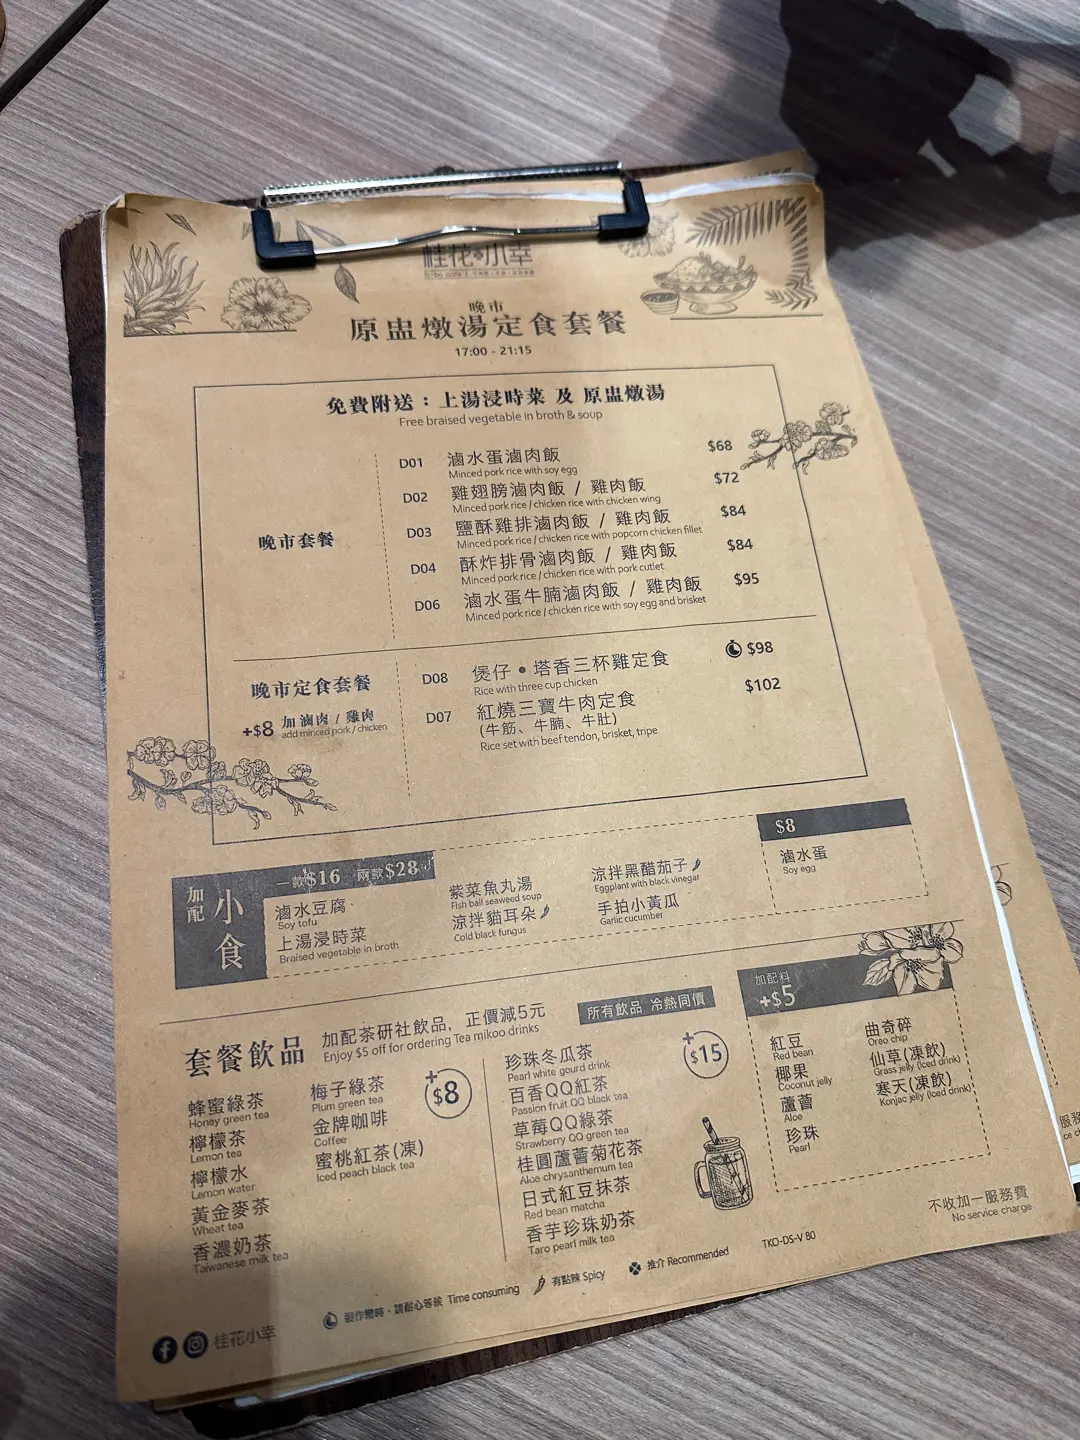 桂花小幸
晚市
原盅燉湯定食套餐
17:00 - 21:15
免費附送：上湯浸時菜 及 原盅燉湯
Free braised vegetable in broth & soup
晚市套餐
D01 滷水蛋滷肉飯 $68
Minced pork rice with soy egg
D02 雞翅膀滷肉飯 / 雞肉飯 $72
Minced pork rice / chicken rice with chicken wing
D03 鹽酥雞排滷肉飯 / 雞肉飯 $84
Minced pork rice / chicken rice with popcorn chicken fillet
D04 酥炸排骨滷肉飯 / 雞肉飯 $84
Minced pork rice / chicken rice with pork cutlet
D06 滷水蛋牛腩滷肉飯 / 雞肉飯 $95
Minced pork rice / chicken rice with soy egg and brisket
晚市定食套餐
+$8 加滷肉 / 雞肉
add minced pork / chicken
D08 煲仔 • 塔香三杯雞定食 $98
Rice with three cup chicken
D07 紅燒三寶牛肉定食 $102
(牛筋、牛腩、牛肚)
Rice set with beef tendon, brisket, tripe
加配
小食
一款$16 兩款$28
滷水豆腐
Soy tofu
上湯浸時菜
Braised vegetable in broth
紫菜魚丸湯
Fish ball seaweed soup
涼拌貓耳朵
Cold black fungus
涼拌黑醋茄子
Eggplant with black vinegar
手拍小黃瓜
Garlic cucumber
$8
滷水蛋
Soy egg
套餐飲品
加配茶研社飲品，正價減5元
Enjoy $5 off for ordering Tea mikoo drinks
所有飲品 冷熱同價
+$8
蜂蜜綠茶
Honey green tea
檸檬茶
Lemon tea
檸檬水
Lemon water
黃金麥茶
Wheat tea
香濃奶茶
Taiwanese milk tea
梅子綠茶
Plum green tea
金牌咖啡
Coffee
蜜桃紅茶(凍)
Iced peach black tea
+$15
珍珠冬瓜茶
Pearl white gourd drink
百香QQ紅茶
Passion fruit QQ black tea
草莓QQ綠茶
Strawberry QQ green tea
桂圓蘆薈菊花茶
Aloe chrysanthemum tea
日式紅豆抹茶
Red bean matcha
香芋珍珠奶茶
Taro pearl milk tea
加配料
+$5
紅豆
Red bean
椰果
Coconut jelly
蘆薈
Aloe
珍珠
Pearl
曲奇碎
Oreo chip
仙草(凍飲)
Grass jelly (Iced drink)
寒天(凍飲)
Konjac jelly (Iced drink)
不收加一服務費
No service charge
製作需時，請耐心等候 Time consuming
有點辣 Spicy
推介 Recommended
TKO-DS-V 80
桂花小幸